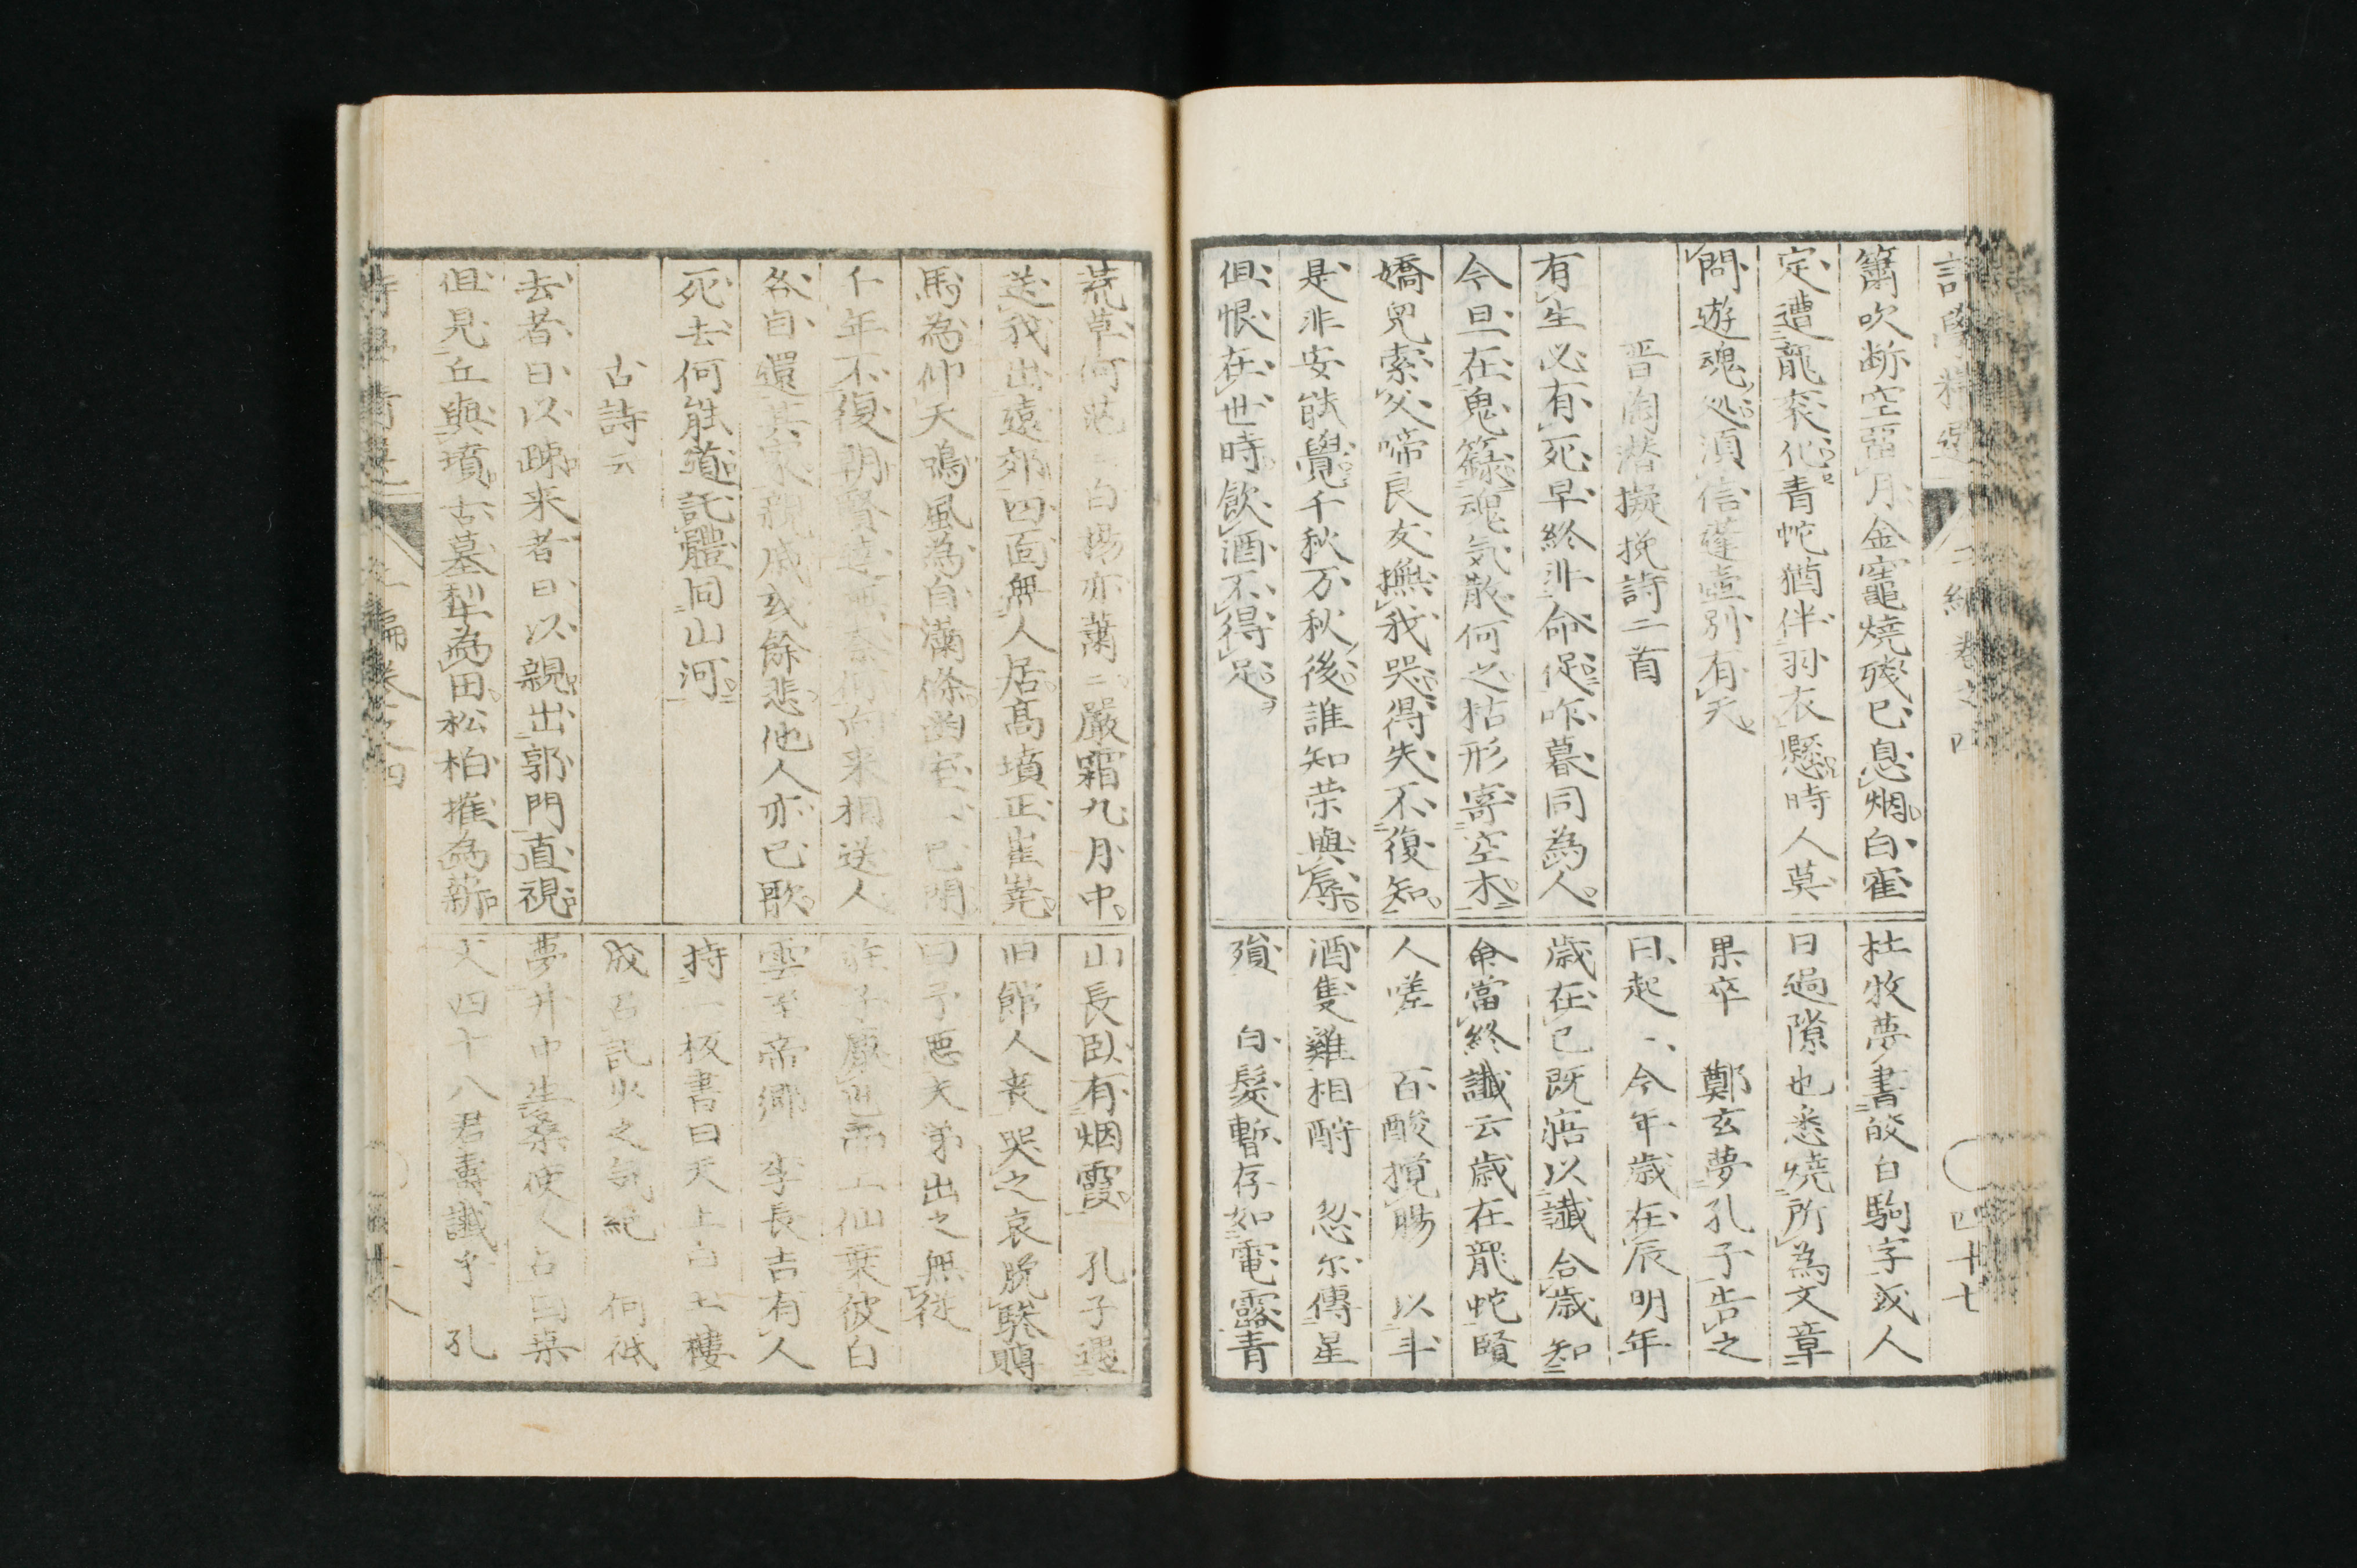 簫吹断空留月金竈燒殘已息烟白雀
定遭龍衮化青蛇猶伴羽衣懸時人莫
問遊魂処須信蓬壷別有天
晋陶潜擬挽詩二首
有生必有死早終非命促昨暮同為人
今旦在鬼籙魂気散何之枯形寄空木
嬌児索父啼良友撫我哭得失不復知
是非安能覺千秋万秋後誰知栄與辱
但恨在世時飲酒不得足
杜牧夢書皎白駒字或人
曰過隙也悉燒所為文章
果卒 鄭玄夢孔子告之
曰起〻今年歳在辰明年
歳在已既寤以讖合歳知
命當終讖云歳在龍蛇賢
人嗟 百酸攪腸 以斗
酒隻雞相酹 忽尔傳星
殞 白髮暫存如電露青
二編巻之四
四十七
荒草何茫〻白揚亦蕭〻嚴霜九月中
送我出遠郊四面無人居髙墳正崔嶤
馬為仰天鳴風為自瀟條幽室一已閉
千年不復朝賢達無奈何向来相送人
各自還其家親戚或餘悲他人亦已歌
死去何能道託體同山河
古詩云
去者日以踈来者日以親出郭門直視
但見丘與墳古墓犁為田松柏摧為薪
山長臥有烟霞 孔子遇
旧館人喪哭之哀脱驂賻
曰予悪夫涕出之無従
雲至帝郷 李長吉有人
持一板書曰天上白玉樓
成召記 何祗
夢井中生桑使人占曰桑
文四十八君壽讖乎 孔
二編巻之四